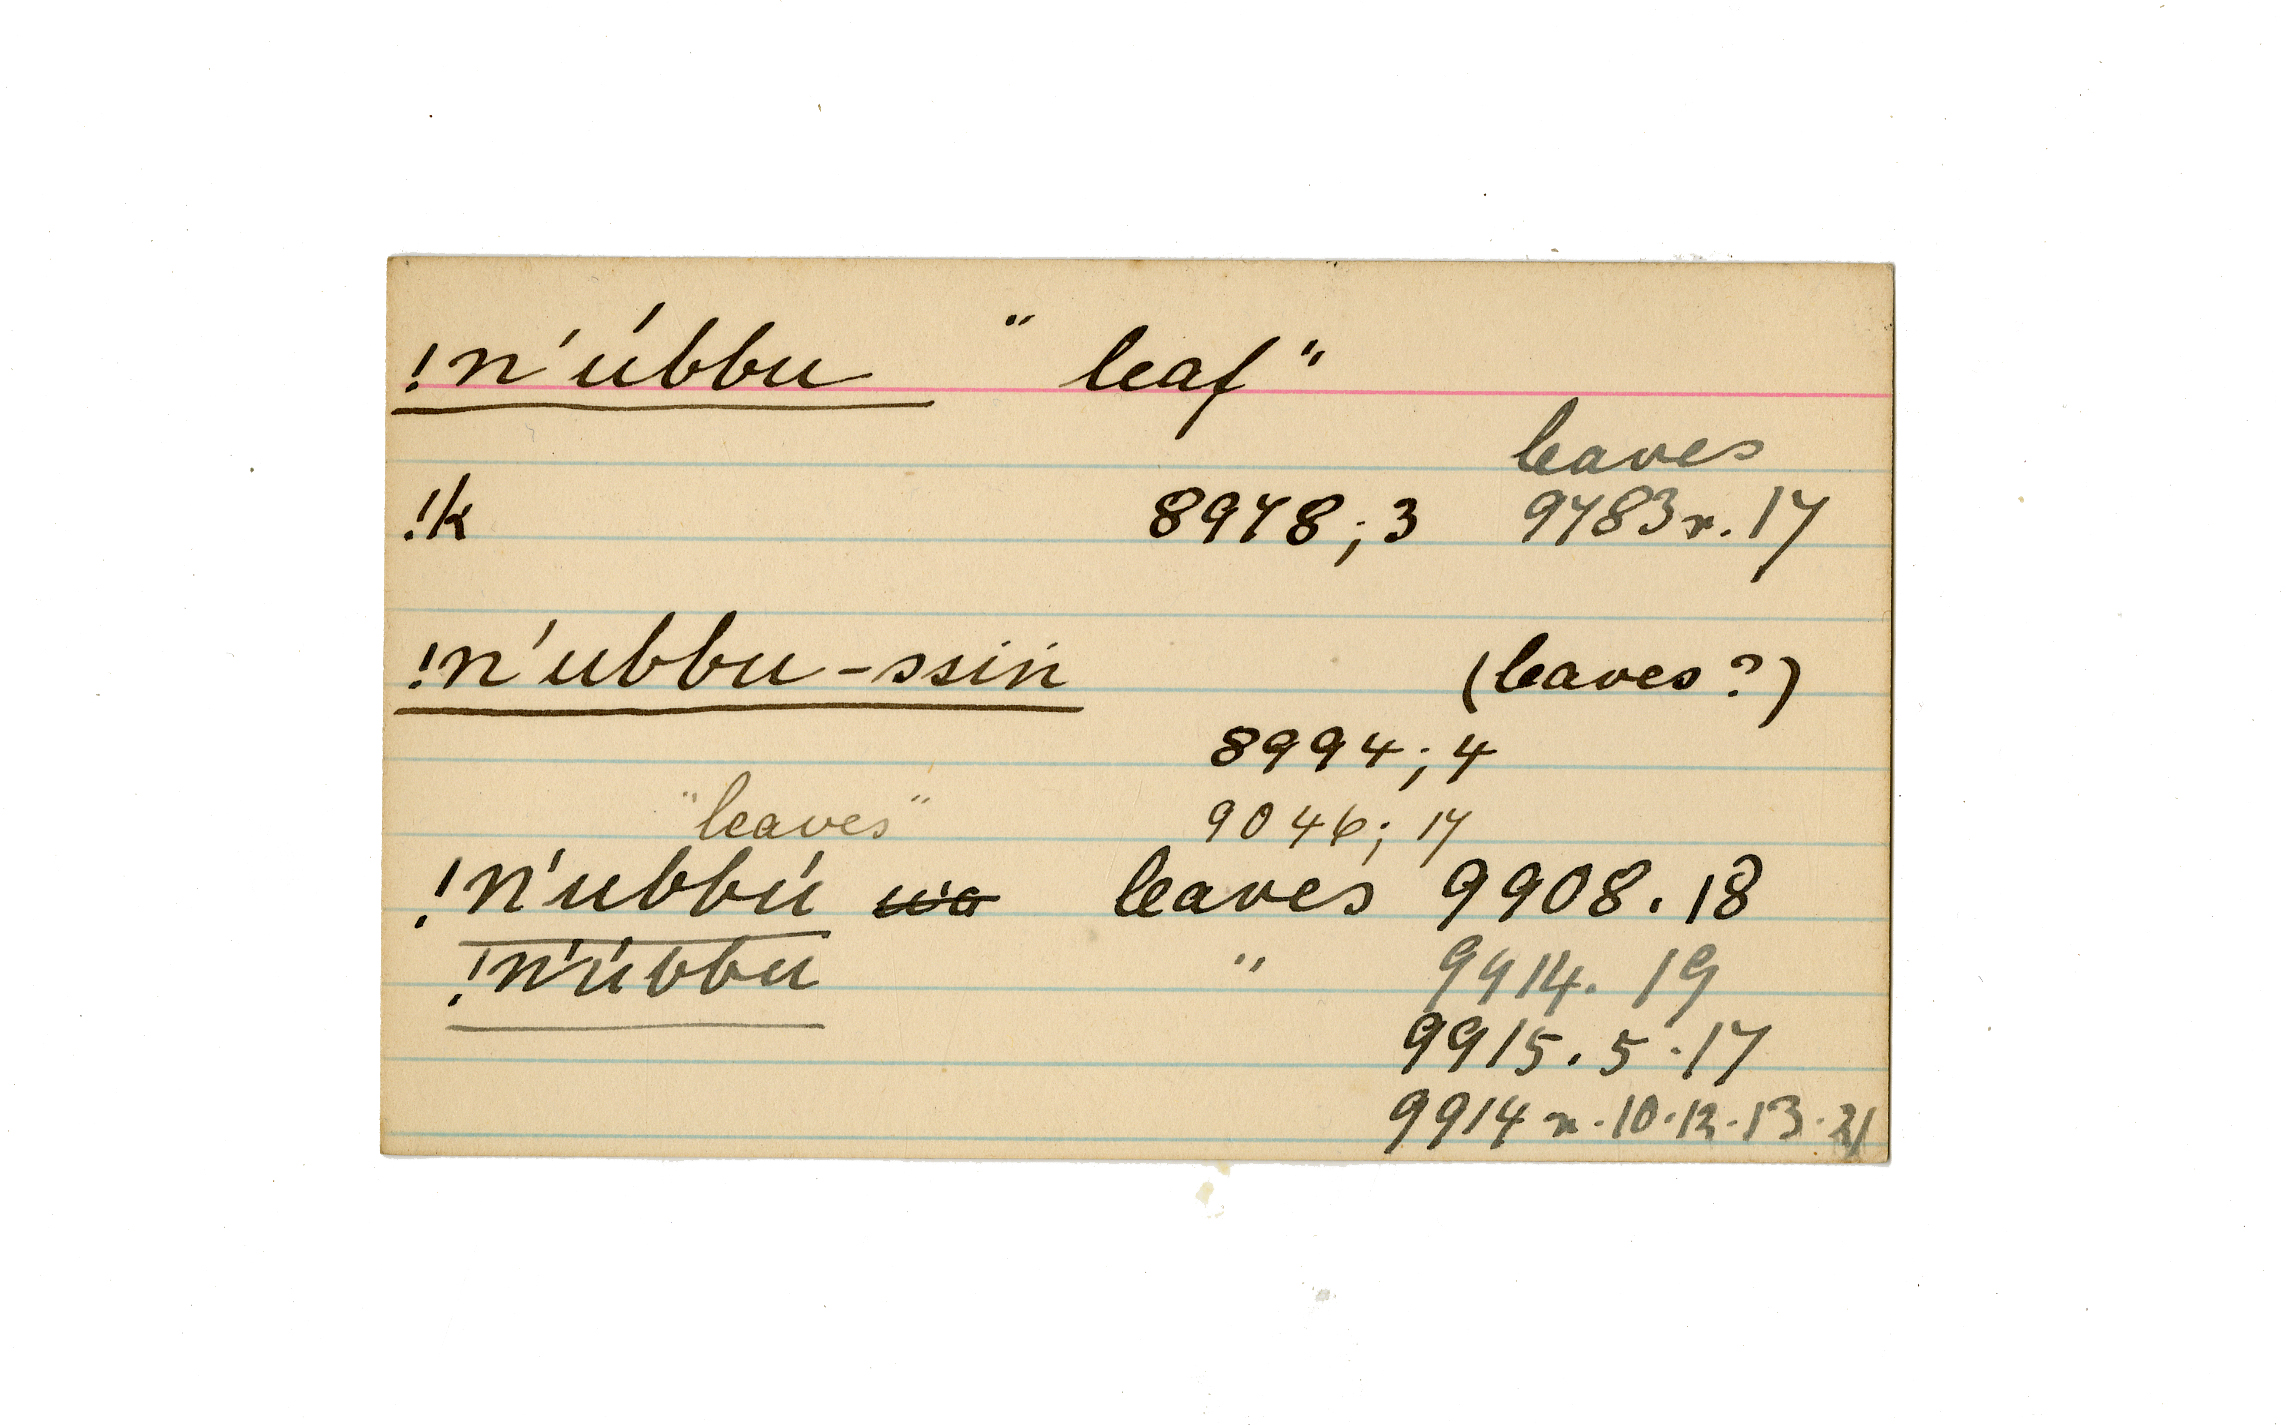 !n'úbbu "leaf"
leaves
!k 8978;3 9783n.17
!n'ubbu-ssin (leaves?)
8994;4
"leaves" 9046; 17
!n'ubbú leaves 9908.18
!n'úbbu " 9914. 19
9915. 5.17
9914 n.10.12.13.21